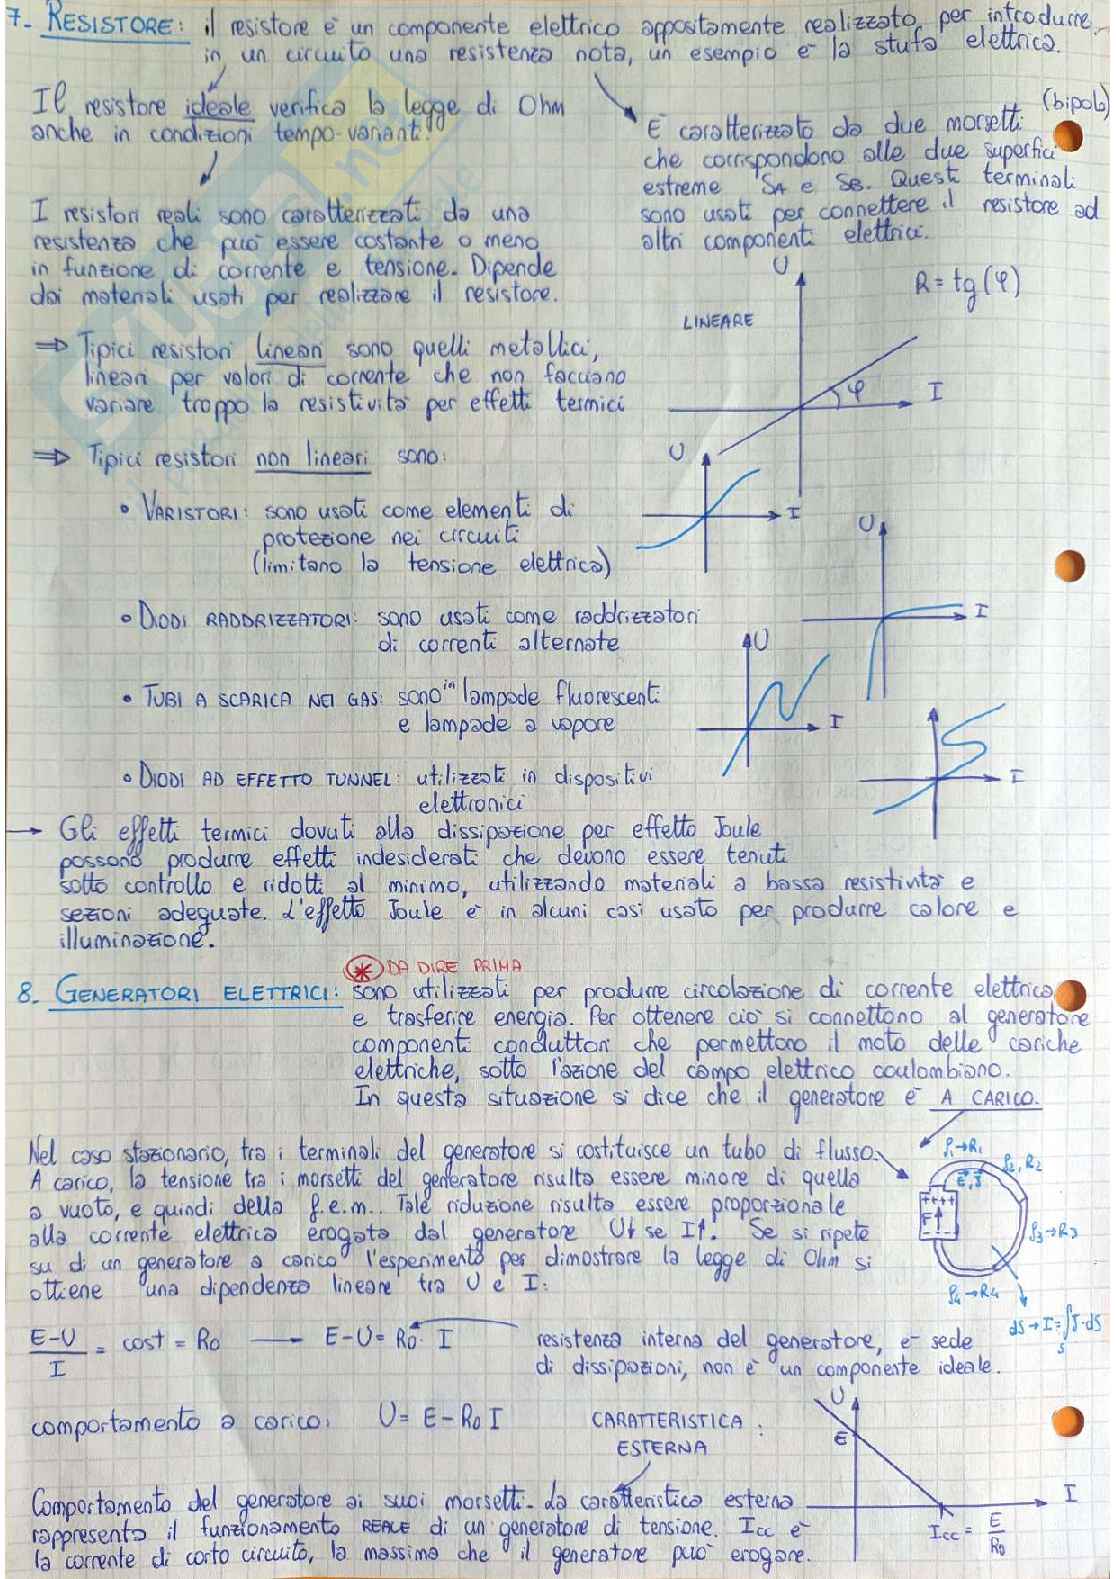 7- RESISTORE: il resistore è un componente elettrico appositamente realizzato per introdurre
in un circuito una resistenza nota, un esempio è la stufa elettrica.
Il resistore ideale verifica la legge di Ohm
anche in condizioni tempo-varianti.
(bipolo)
È caratterizzato da due morsetti
che corrispondono alle due superfici
estreme SA e SB. Questi terminali
sono usati per connettere il resistore ad
altri componenti elettrici.
I resistori reali sono caratterizzati da una
resistenza che può essere costante o meno
in funzione di corrente e tensione. Dipende
dai materiali usati per realizzare il resistore.
U
R = tg(φ)
LINEARE
φ
I
⇒ Tipici resistori lineari sono quelli metallici,
lineari per valori di corrente che non facciano
variare troppo la resistività per effetti termici
⇒ Tipici resistori non lineari sono:
U
I
• VARISTORI: sono usati come elementi di
protezione nei circuiti
(limitano la tensione elettrica)
U
I
• DIODI RADDRIZZATORI: sono usati come raddrizzatori
di correnti alternate
U
I
• TUBI A SCARICA NEI GAS: sono in lampade fluorescenti
e lampade a vapore
I
• DIODI AD EFFETTO TUNNEL: utilizzati in dispositivi
elettronici
→ Gli effetti termici dovuti alla dissipazione per effetto Joule
possono produrre effetti indesiderati che devono essere tenuti
sotto controllo e ridotti al minimo, utilizzando materiali a bassa resistività e
sezioni adeguate. L'effetto Joule è in alcuni casi usato per produrre calore e
illuminazione.
* DA DIRE PRIMA
8- GENERATORI ELETTRICI: sono utilizzati per produrre circolazione di corrente elettrica
e trasferire energia. Per ottenere ciò si connettono al generatore
componenti conduttori che permettono il moto delle cariche
elettriche, sotto l'azione del campo elettrico coulombiano.
In questa situazione si dice che il generatore è A CARICO.
Nel caso stazionario, tra i terminali del generatore si costituisce un tubo di flusso.
A carico, la tensione tra i morsetti del generatore risulta essere minore di quella
a vuoto, e quindi della f.e.m.. Tale riduzione risulta essere proporzionale
alla corrente elettrica erogata dal generatore U↓ se I↑. Se si ripete
su di un generatore a carico l'esperimento per dimostrare la legge di Ohm si
ottiene una dipendenza lineare tra U e I:
ρ1→R1
ρ2, R2
E, J
++++
F
ρ3→R3
ρ4→R4
dS → I = ∫S J · dS
E-U/I = cost = R0 → E-U = R0 · I
resistenza interna del generatore, è sede
di dissipazioni, non è un componente ideale.
comportamento a carico: U = E - R0 I
CARATTERISTICA :
ESTERNA
U
E
I
Icc = E/R0
Comportamento del generatore ai suoi morsetti. La caratteristica esterna
rappresenta il funzionamento REALE di un generatore di tensione. Icc è
la corrente di corto circuito, la massima che il generatore può erogare.